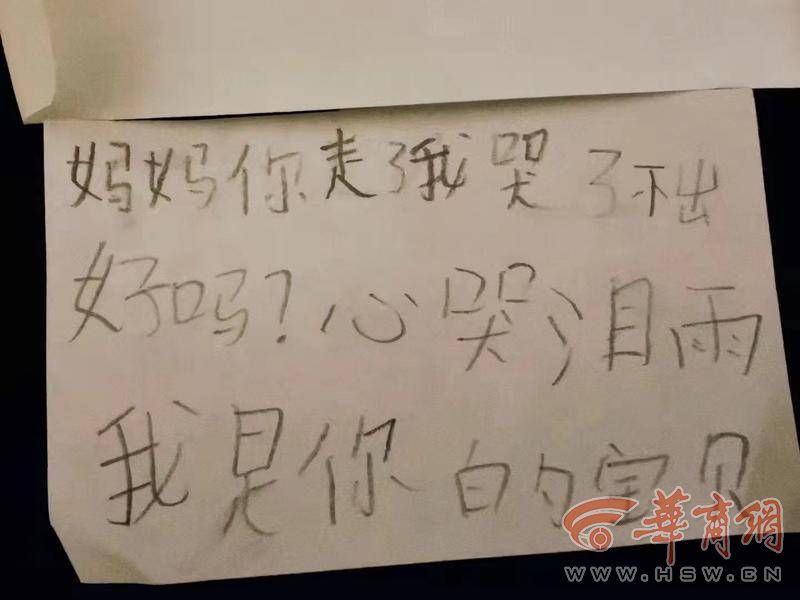 妈妈你走了我哭了不出
好吗?心哭泪雨
我是你的宝贝
華商網
WWW.HSW.CN